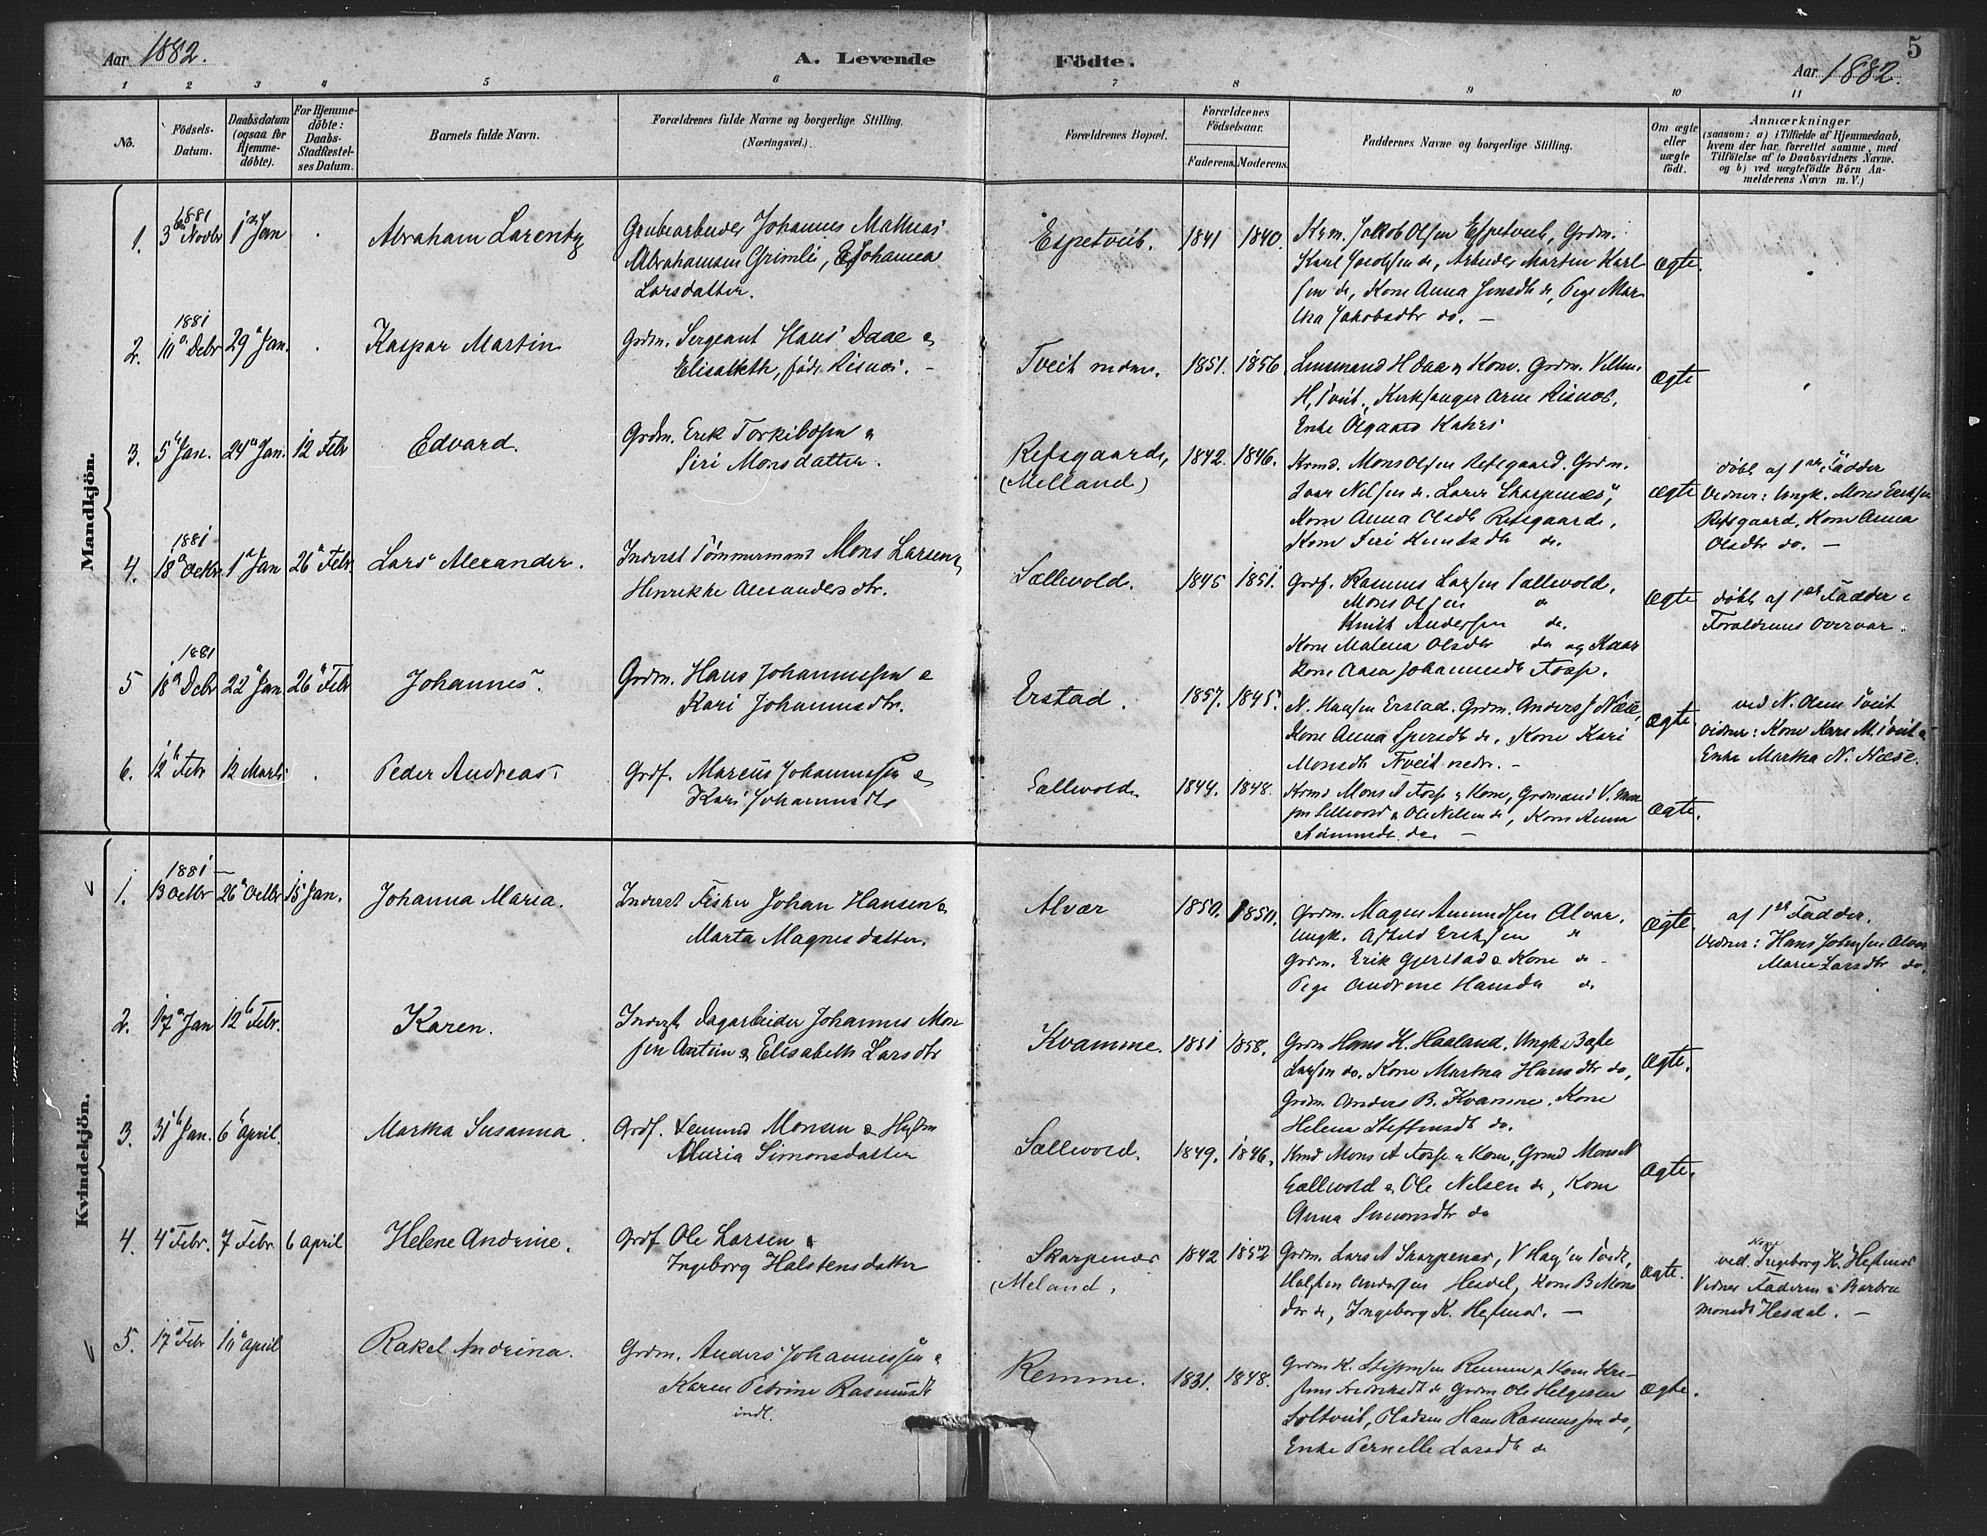 Aar 1882.
A. Levende Födte.
Aar 1882.
5
1 2 3 4 5 6 7 8 9 10 11
No.
Födsels-Datum.
Daabsdatum (ogsaa for Hjemme-döbte).
For Hjemme-döbte: Daabs-Stadfæstel-ses Datum.
Barnets fulde Navn.
Forældrenes fulde Navne og borgerlige Stilling. (Næringsvei.)
Forældrenes Bopæl.
Forældrenes Födselsaar.
Faderens. Moderens.
Faddernes Navne og borgerlige Stilling.
Om ægte eller uægte födt.
Anmærkninger
(saasom: a) i Tilfælde af Hjemmedaab, hvem der har forrettet samme, med Tilföielse af to Daabsvidners Navne. og b) ved uægtefödte Börn An-melderens Navn m. V.)
Mandkjön.
1. 1881 3 Novbr 1 Jan Abraham Larentz
Grubearbeider Johannes Mathias
Abrahamsen Grimlii, Johanna
Larsdatter.
Espetveit. 1841 1840.
Krm. Jakob Olsen Espetveit, Grdm.
Karl Jacobsen do, Arbeider Martin Karl
sen do, Kone Anna Jensdtr do, Pige Mar
tha Jakobsdtr do. —
Ægte.
2. 1881 10 Debr 29 Jan. Kaspar Martin
Grdm. Sergeant Hans Daae &
Elisabeth, föd Risnæs. —
Tveit nedre. 1851. 1856.
Lensmand H Daa & Kone. Grdm. Villum
H. Tveit, Kirksanger Arne Risnæs,
Enke Olgaard Kahrs
Ægte
3. 5 Jan. 24 Jan. 12 Febr Edvard.
Grdm. Erik Torkildsen &
Siri Monsdatter.
Refsgaard, (Melland) 1842. 1846.
Krmd. Mons Olsen Refsgaard. Grdm.
Ivar Nilsen do. Lærer Skarpenæs,
Kone Anna Olsdtr Refsgaard,
Kone Siri Knutsdtr do.
Ægte
döbt af 1ste Fadder
Vidner: Ungk. Mons Eriksen
Refsgaard, Kone Anna
Olsdtr do. —
4. 1881 18 Octbr 1 Jan 26 Febr. Lars Alexander.
Inderst Tömmermand Mons Larsen &
Henrikke Alexandersdtr.
Sællevold. 1845 1851.
Grdf. Rasmus Larsen Sællevold,
Mons Olsen do
Knut Andersen do.
Kone Malena Olsdtr do og Kaar
kone Anna Johannesdtr Fosse.
Ægte
döbt af 1ste Fadder i
Forældrenes Overvær.
5 1881 18 Debr 22 Jan. 26 Febr Johannes.
Grdm. Hans Johannessen &
Kari Johannesdtr.
Erstad. 1857. 1845.
N. Hansen Erstad. Grdm. Anders J Næse,
Kone Anna Iversdtr do, Kone Kari
Monsdtr Tveit nedr. —
Ægte.
ved N. Olsen Tveit
Vidner: Kone Kari M. Tveit &
Enke Martha N. Næse.
6. 12 Febr 12 Marts Peder Andreas.
Grdf. Marcus Johannessen &
Kari Johannesdtr
Sallevold. 1844. 1848.
Krmd Mons A Fosse & Kone, Grdmand V. Mon
sen Sellevold & Ole Nilsen do, Kone Anna
do. —
Ægte.
Kvindekjön.
1. 1881 13 Octbr 26 Octbr 15 Jan. Johanna Maria.
Inderst Fisker Johan Hansen &
Marta Magnesdatter.
Alvær 1850. 1850.
Grdm. Magne Amundsen Alvær.
Ungk. Eriksen do
Grdm. Erik Gjerstad & Kone do.
Pige Andrine Hansdtr do
Ægte.
af 1ste Fadder.
Vidner: Hans Johnsen Alvær
Marie Larsdtr do.
2. 17 Jan 12 Febr. Karen.
Inderst Dagarbeider Johannes Mon
sen & Elisabeth Larsdtr
Kvamme. 1851 1858.
Grdm Hans K. Haaland. Ungk.
Larsen do. Kone Martha Hansdtr do,
Grdm. Anders B. Kvamme. Kone
Helena Steffensdtr do.
Ægte.
3. 31 Jan. 6 April. Martha Susanna.
Grdf. Monsen & Hustru
Maria Simonsdatter
Sællevold. 1849. 1846.
Krmd Mons A Fosse & Kone, Grmd Mons N
Sallevold & Ole Nilsen do, Kone
Anna Simonsdtr do
Ægte.
4. 4 Febr. 7 Febr. 6 April Helene Andrine.
Grdf Ole Larsen &
Ingeborg Halstensdatter
Skarpenæs (Meland. 1842 1852
Grdm. Lars A Skarpenæs,
Halsten Andersen Hesdal, Kone B Mons
dtr do, Ingeborg K. Hestnæs. —
Ægte.
ved Kone Ingeborg K. Hestnæs
Vidner Faderen & Barbra
monsdtr Hesdal. —
5. 17 Febr 10 April Rakel Andrina.
Grdm. Anders Johannessen &
Karen Petrine Rasmusdtr
indl.
Remme. 1831. 1848.
Grdm K. Steffensen Remme & Kone
Fredriksdtr do Grdm Ole Helgesen
Soltveit, Hans Rasmussen do,
Enke Pernille Larsdtr do
Ægte.